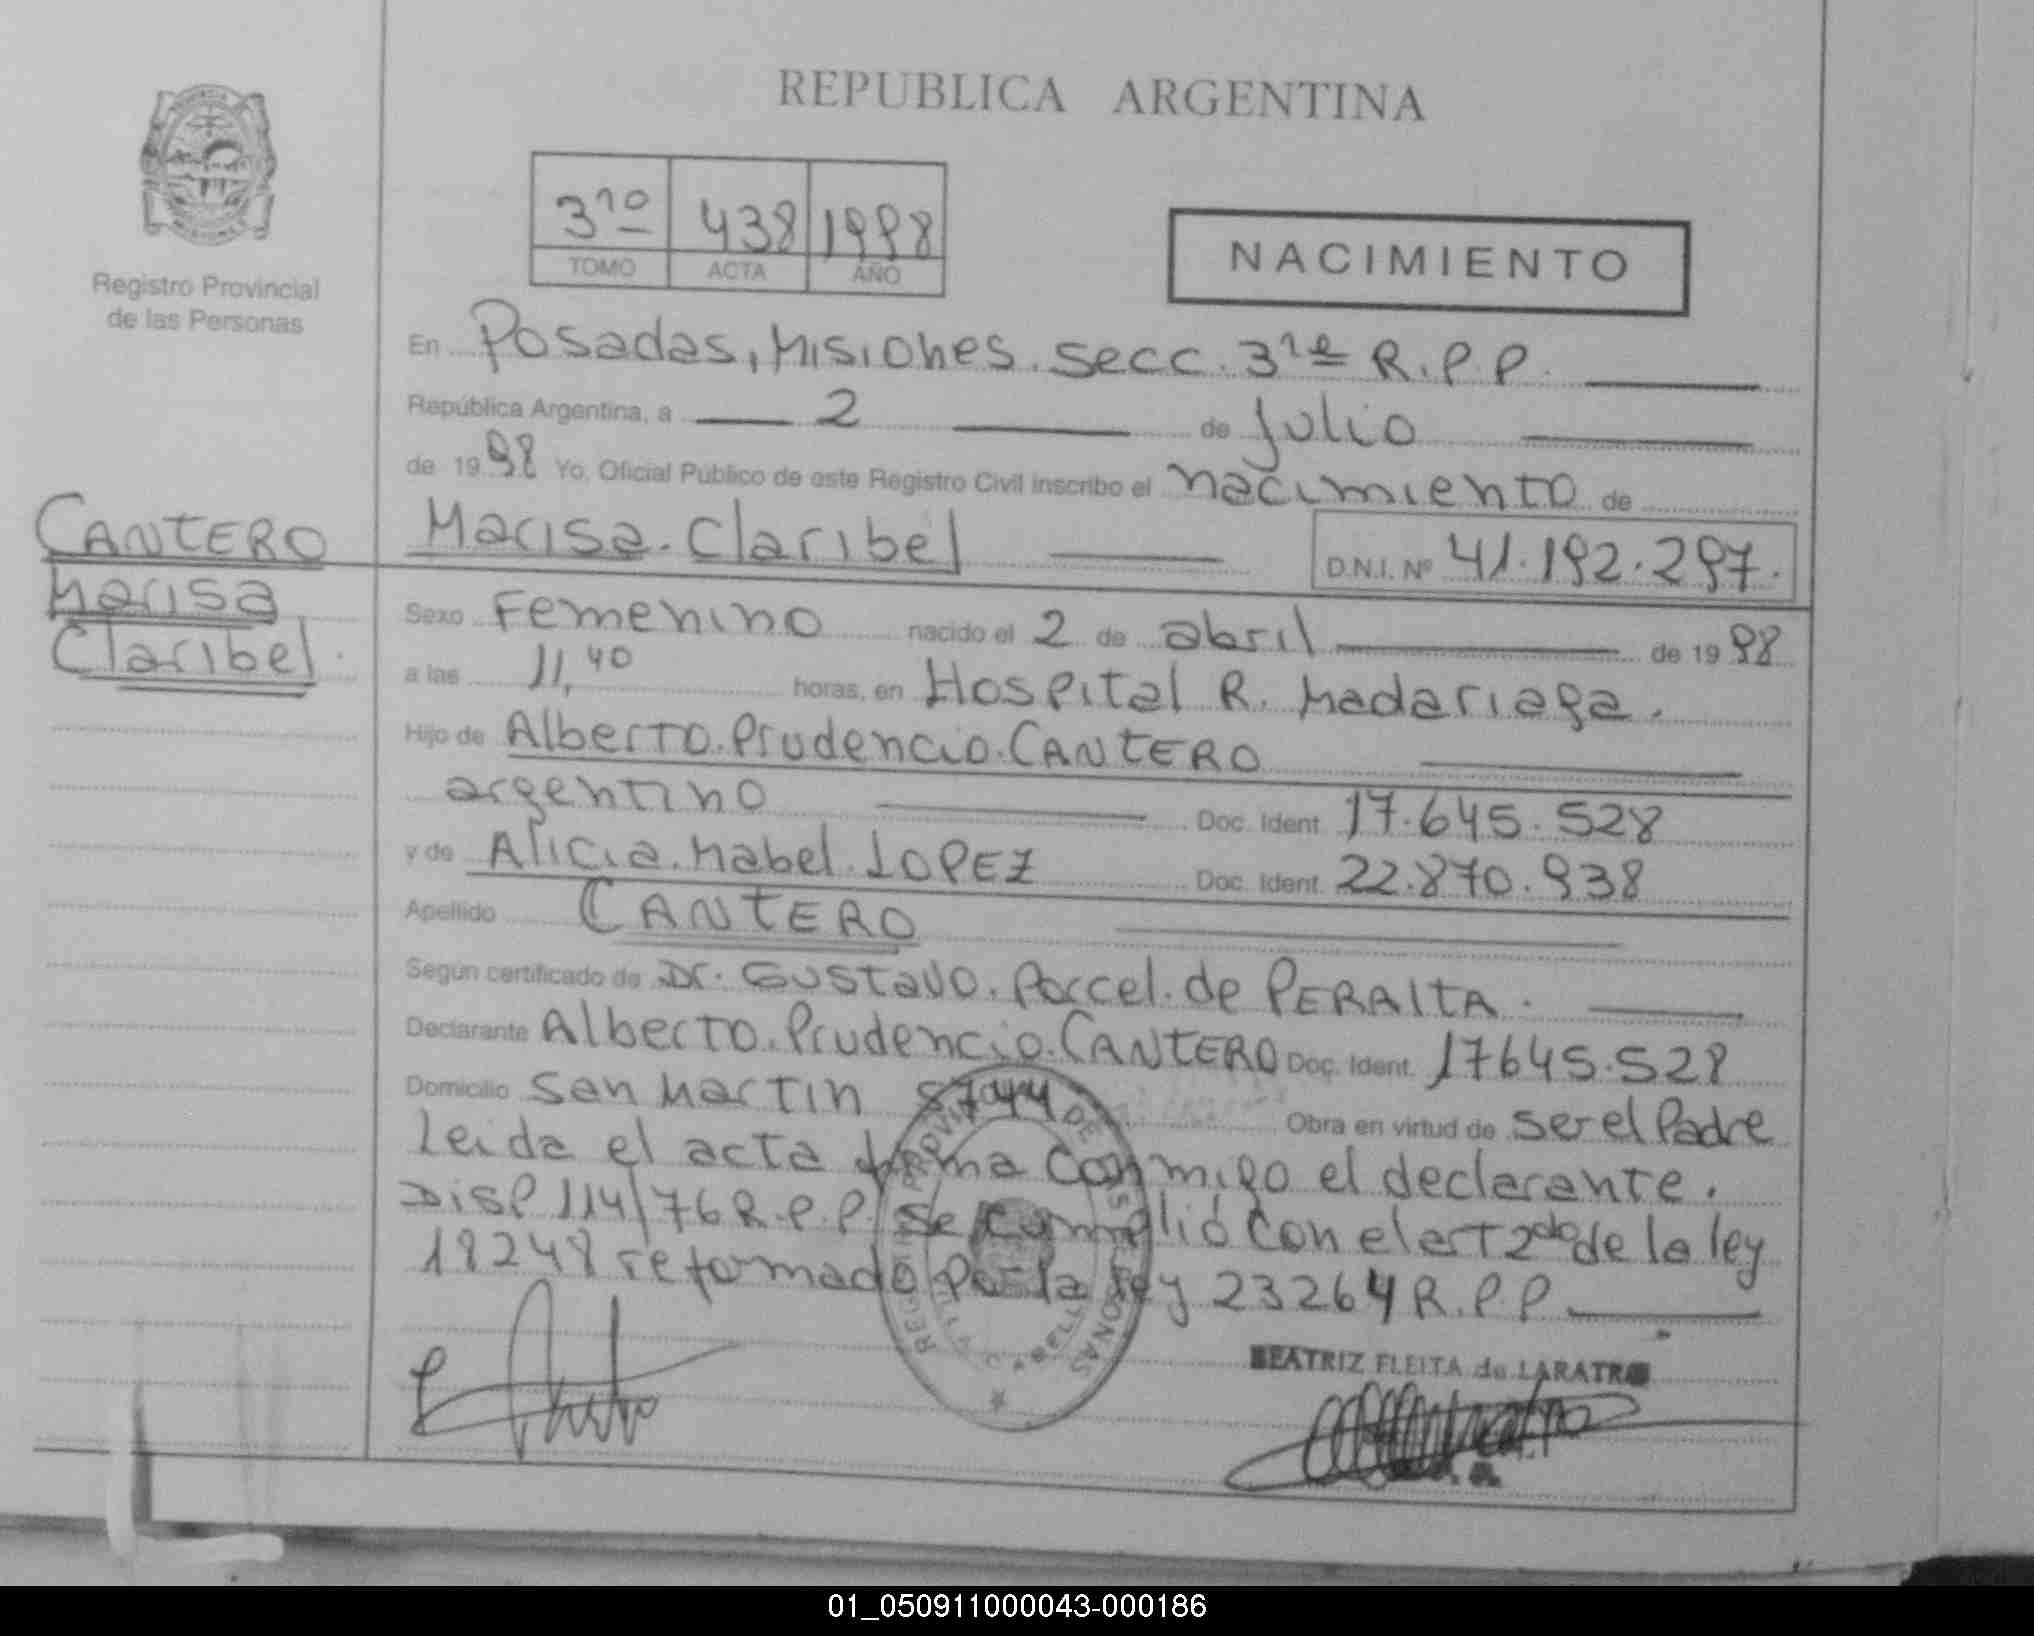 REPUBLICA ARGENTINA
Registro Provincial
de las Personas
3ro 438 1998
TOMO ACTA AÑO
NACIMIENTO
En Posadas, Misiones. Secc. 3ra R.P.P.
República Argentina, a 2 de Julio
de 1998 Yo, Oficial Público de este Registro Civil inscribo el nacimiento de
CANTERO
Marisa
Claribel.
Marisa. Claribel
D.N.I. Nº 41.192.297.
Sexo Femenino nacido el 2 de abril de 1998
a las 11,40 horas, en Hospital R. Madariaga.
Hijo de Alberto. Prudencio. CANTERO
argentino Doc. Ident. 17.645.528
y de Alicia. Mabel. LOPEZ Doc. Ident. 22.870.938
Apellido CANTERO
Según certificado de Dr. Gustavo. Porcel. de PERALTA.
Declarante Alberto. Prudencio. CANTERO Doc. Ident. 17645.528
Domicilio San Martin Obra en virtud de ser el Padre
Leida el acta firma conmigo el declarante.
Disp 114/76 R.P.P. se cumplió con el art 2do de la ley
18248 reformado por la ley 23264 R.P.P.
BEATRIZ FLEITA de LARATRO
01_050911000043-000186